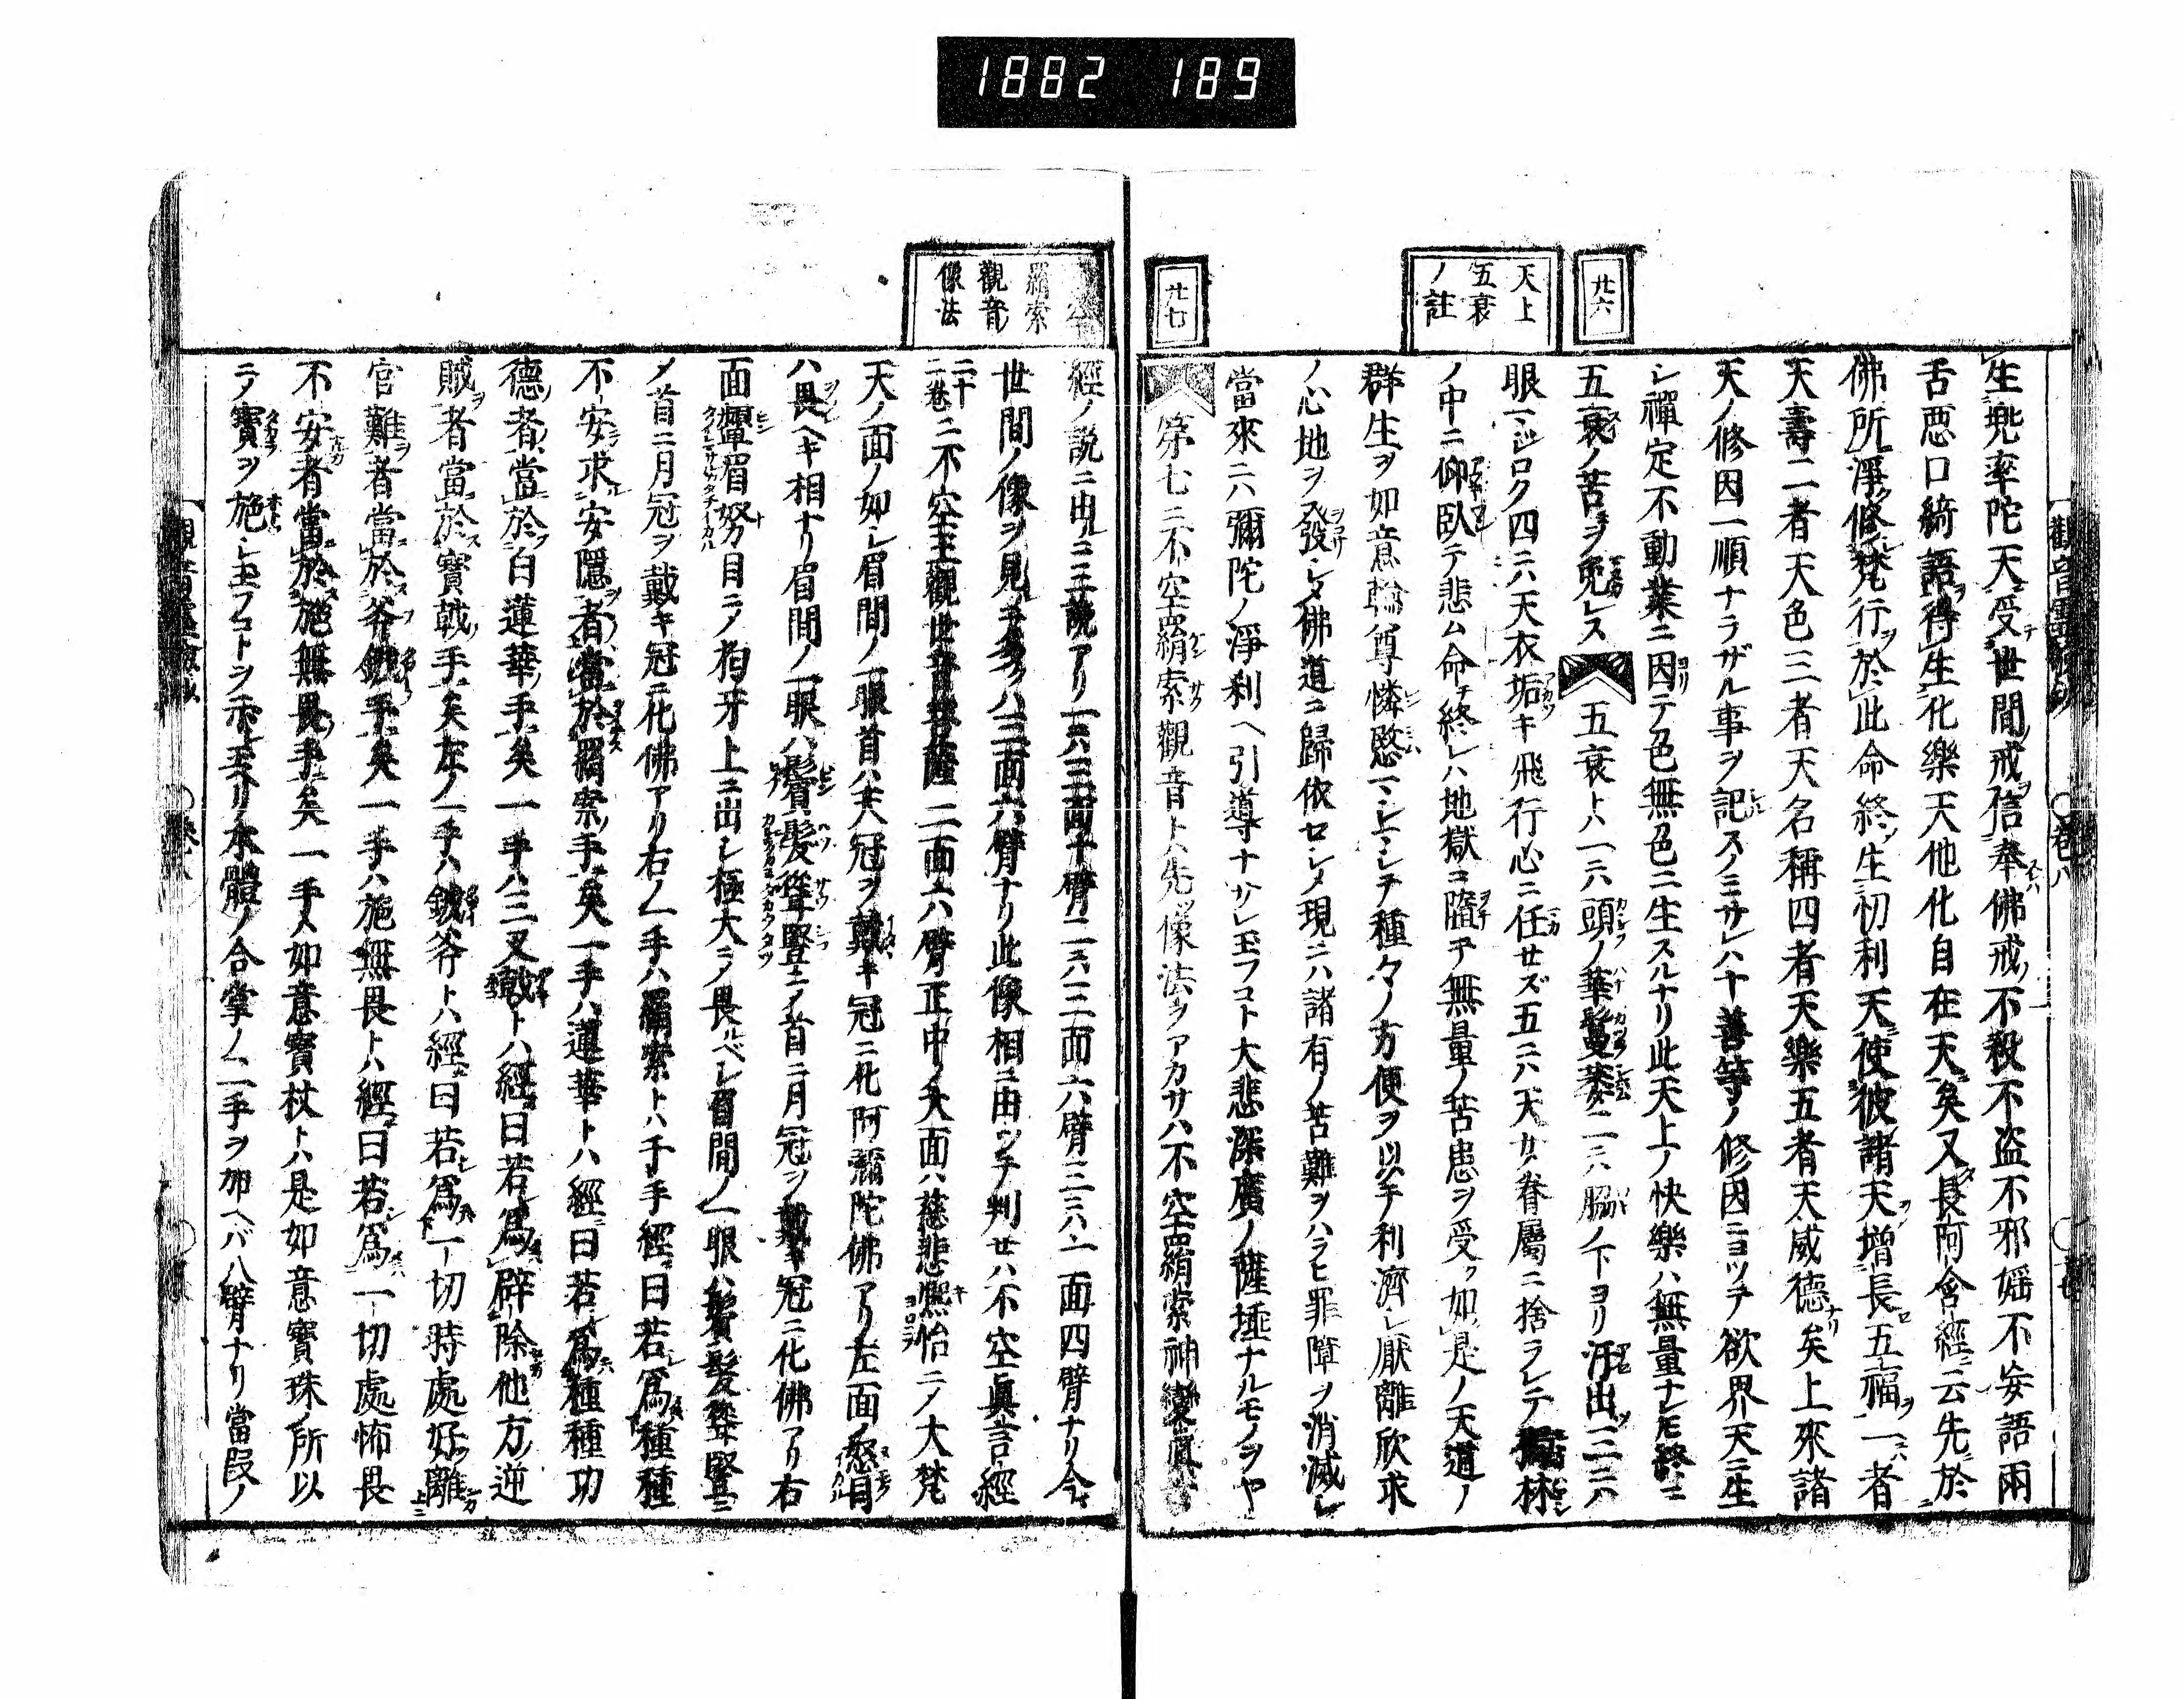 1882 189
廿六
天上
五衰
ノ註
廿七
生兜率陀天受世間戒信奉佛戒不殺不盗不邪婬不妄語兩
舌悪口綺語得生化樂天他化自在天矣又長阿含經云先於
佛所淨修梵行於此命終生忉利天使彼諸天增長五福一者
天壽二者天色三者天名稱四者天樂五者天威德矣上來諸
天ノ修因一順ナラザル事ヲ記スノミサレハ十善等ノ修因ニヨツテ欲界天ニ生
シ禪定不動業ニ因テ色無色ニ生スルナリ此天上ノ快樂ハ無量ナレモ終ニ
五衰ノ苦ヲ免レス五衰トハ一ニハ頭ノ華鬘萎ニニハ脇ノ下ヨリ汗出三ニハ
眼マジロク四ニハ天衣垢キ飛行心ニ任サズ五ニハ天女眷屬ニ捨ラレテ林
ノ中ニ仰臥テ悲ム命チ終レハ地獄ニ墮チ無量ノ苦患ヲ受ク如是ノ天道ノ
群生ヲ如意輪尊憐愍マシマシテ種々ノ方便ヲ以テ利濟シ厭離欣求
ノ心地ヲ發シメ佛道ニ歸依セシメ現ニハ諸有ノ苦難ヲハラヒ罪障ヲ消滅シ
當來ニハ彌陀ノ淨刹ヘ引導ナサレ玉フコト大悲深廣ノ薩埵ナルモノヲヤ
第七ニ不空羂索觀音トハ先ツ像法ヲアカサハ不空羂索神變眞言
羂索
觀音
像法
經ノ説ニ出ニ三説アリ一ニハ三面十臂二ニハ三面六臂三ニハ一面四臂ナリ今
世間ノ像ヲ見ルニ多クハ三面六臂ナリ此像相ニ由ツテ判セハ不空眞言經
二十二卷ニ不空王觀世音菩薩三面六臂正中ノ大面ハ慈悲熈怡ニノ大梵
天ノ面ノ如シ眉間ノ一眼首ハ天冠ヲ戴キ冠ニ化阿彌陀佛アリ左面ノ怒目
ハ畏ヘキ相ナリ眉間ノ一眼ハ鬢髮聳竪ニノ首ニ月冠ヲ戴キ冠ニ化佛アリ右
面顰眉努目ニノ狗牙上ニ出シ極大ニノ畏ルベシ眉間ノ一眼ハ鬢髮聳竪ニ
メ首ニ月冠ヲ戴キ冠ニ化佛アリ右ノ一手ハ羂索トハ千手經ニ曰若爲種種
不安求安隱者當於羂索手矣一手ハ蓮華トハ經ニ曰若爲種種功
德者當於白蓮華手矣一手ハ三叉戟トハ經曰若爲辟除他方逆
賊者當於寶戟手矣左ノ一手ハ鉞斧トハ經曰若爲一切時處好離
官難者當於斧鉞手矣一手ハ施無畏トハ經曰若爲一切處怖畏
不安者當於施無畏手矣一手ハ如意寶杖トハ是如意寶珠ノ所以
ニノ寶ヲ施シ玉フコトヲ示玉ヘリ本體ノ合掌ノ二手ヲ加ヘバ八臂ナリ當段ノ